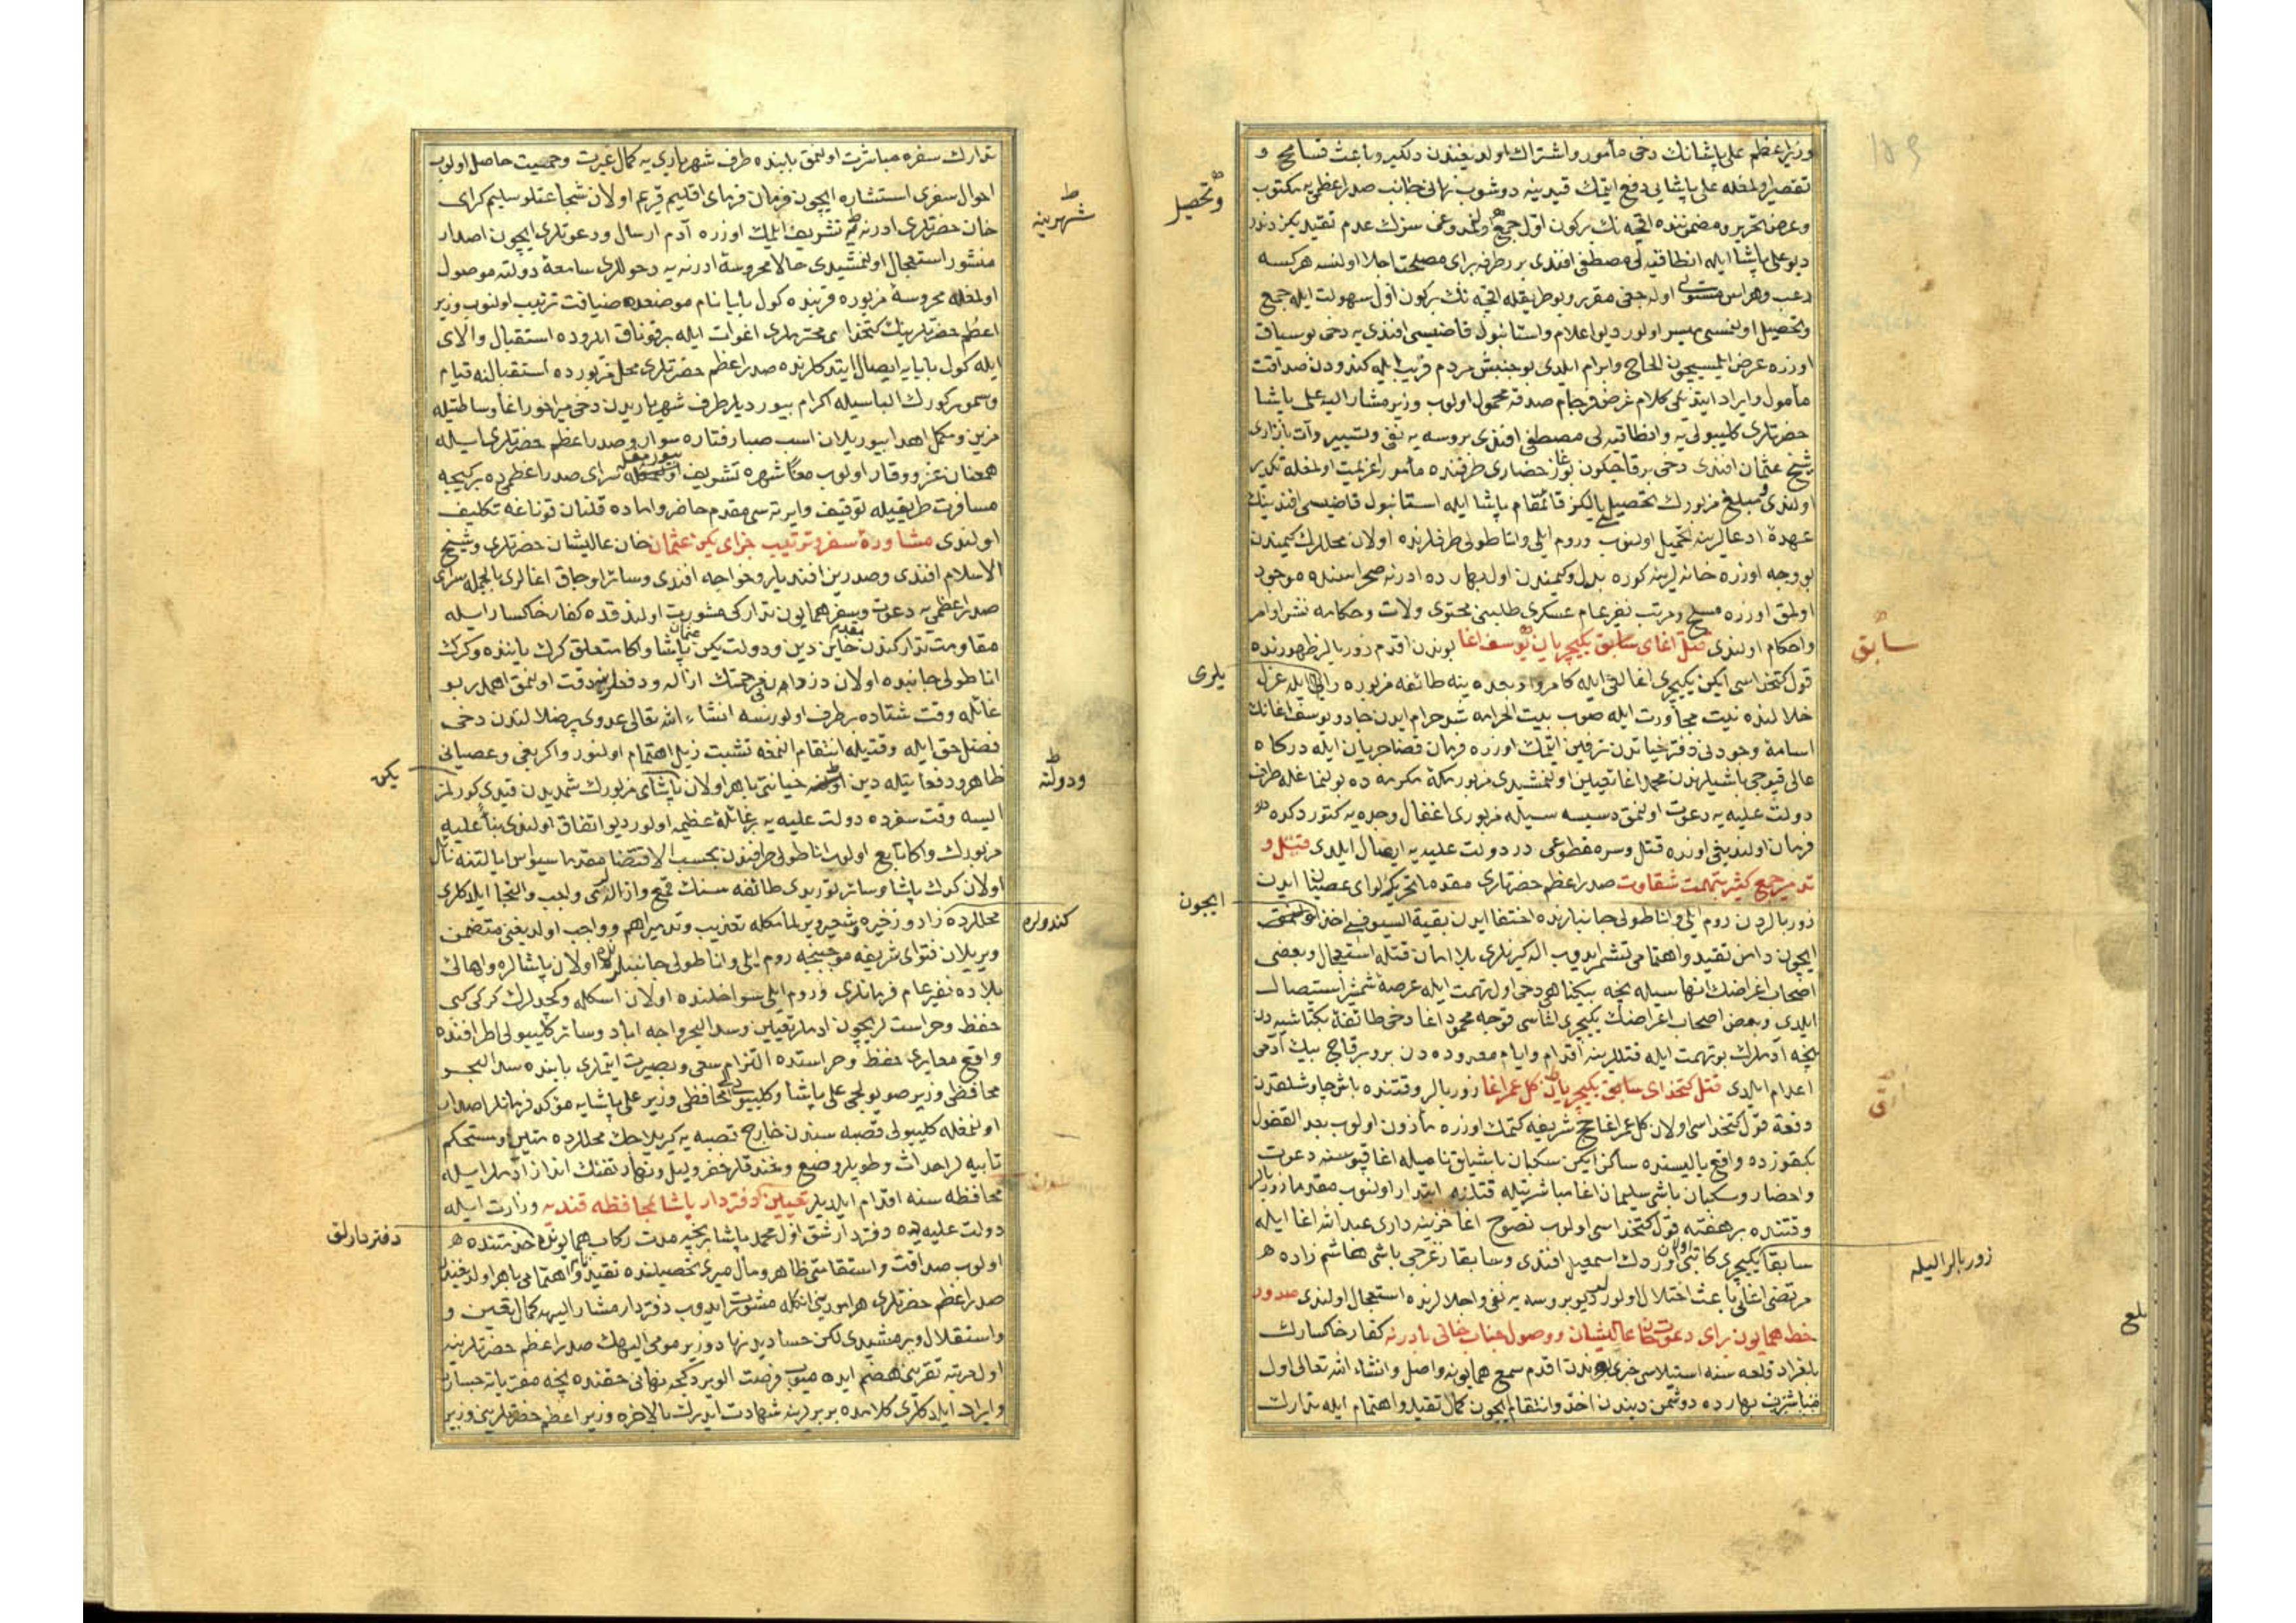 وزیراعظم علی پاشانك دخی مأمور واشتراك اولدیغندن دلكیر وباعث تسامح و
تقصیر اولمغله علی پاشایی دفع ایتمك قیدینه دوشوب نهانی جانب صدراعظمی یه مكتوب
وعرض تحریر ومضمننده اقچه نك بركون اول جمع
دیو علی پاشا ایله مصطفی افندی بر طرفه برای مصلحت اجلا اولنسه هركسه
رعب وهراس مستولی اوله جغی مقرر وبو طریقله اقچه نك بركون اول سهولت ایله جمع
وتحصیل اولنمسی میسر اولور دیو اعلام واستانبول قاضیسی افندی یه دخی بو سیاق
اوزره عرض ایلمسیچون الحاح وابرام ایلدی بو جنبش مردم فریب ایله كندودن صداقت
مأمول وایراد ایتدیكی كلام غرض فرجام صدقه محمول اولوب وزیر مشار الیه علی پاشا
حضرتلری كلیبولی یه مصطفی افندی بروسه یه نفی وتسییر وآت بازاری
شیخی عثمان افندی دخی برقاچ كون بوغاز حصاری طرفنده مأمور عزیمت اولمغله تكدیر
اولندی ومبلغ مزبورك تحصیلی یالكز قائمقام پاشا ایله استانبول قاضیسی افندینك
عهده ادعالرینه تحمیل اولنوب وروم ایلی واناطولی طرفلرنده اولان محللرك كیمیندن
بو وجه اوزره خانه لرینه كوره بدل وكیمیندن اول بهارده ادرنه صحراسنده موجود
اولمق اوزره مسلح ومرتب نفیر عام عسكری طلبینی محتوی ولات وحكامه نشر اوامر
واحكام اولندی قتل اغای سابق یكیچریان یوسف اغا بوندن اقدم زوربالر ظهورنده
قول كتخداسی ایكن یكیچری اغالغی ایله كامروا وبعده ینه طائفه مزبوره رأیی ایله عزل
خلالنده نیت مجاورت ایله صوب بیت الحرامه شد حرام ایدن جادو یوسف اغانك
اسامه وجودنی دفتر حیاتدن ترقین ایتمك اوزره فرمان قضا جریان ایله دركاه
عالی قپوجی باشیلرندن محمد اغا تعیین اولنمشیدی مزبور مكه مكرمه ده بولنمغله طرف
دولت علیه یه دعوت اولنمق دسیسه سیله مزبوری اغفال وجده یه كتوردكده
فرمان اولندیغی اوزره قتل وسره مقطوعی در دولت علیه یه ایصال ایلدی قتل و
تدمیر جمع كثیر بتهمت شقاوت صدراعظم حضرتلری مقدما تحریك لوای عصیان ایدن
زوربالردن روم ایلی واناطولی جانبلرنده اختفا ایدن بقیة السیوفی اخذ
ایچون دامن تقید واهتمامی تشمیر ایدوب اله كیرنلری بلا امان قتله استعجال وبعضی
اصحاب اغراضك انهاسیله نیجه بیكناهی دخی اول تهمت ایله عرضه شمشیر استیصال
ایلدی وبعض اصحاب اغراضك یكیچری اغاسی قوجه محمود اغا دخی طائفه بكتاشیه دن
نیجه آدملرك بو تهمت ایله قتللرینه اقدام وایام معدوده دن برو برقاچ بیك آدمی
اعدام ایلدی قتل كتخدای سابق یكیچریان كل عمر اغا زوربالر وقتنده باش چاوشلقدن
دفعة قول كتخداسی اولان كل عمر اغا حج شریفه كتمك اوزره مأذون اولوب بعد القفول
بكقوزده واقع یالیسنده ساكن ایكن سكبان باشیلق نامیله اغا قپوسنه دعوت
واحضار وسكبان باشی سلیمان اغا مباشرتیله قتلنه ابتدار اولنوب مقدما زوربالر
وقتنده بر هفته قول كتخداسی اولوب نصوح اغا خزینه داری عبدالله اغا ایله
سابقا یكیچری كاتبی اولان اوردك اسمعیل افندی وسابقا زغرجی باشی هاشم زاده
مرتضی اغایی باعث اختلال اولور دیو بروسه یه نفی واجلالرنده استعجال اولندی صدور
خط همایون برای دعوت خان عالیشان ووصول جناب خانی بادرنه كفار خاكسارك
بلغراد قلعه سنه استیلاسی خبری بوندن اقدم سمع همایونه واصل وانشاء الله تعالی اول
بهارده دوشمن دیندن اخذ وانتقام ایچون كمال تقید واهتمام ایله تدارك
وتحصیل
سابق
یلری
ایچون
زوربالر ایله
بلغ
تدارك سفره مباشرت اولنمق بابنده طرف شهریاری یه كمال غیرت وحمیت حاصل اولوب
احوال سفری استشاره ایچون فرمان فرمای اقلیم قریم اولان شجاعتلو سلیم كرای
خان حضرتلری ادرنه یه تشریف ایلمك اوزره آدم ارسال ودعوتلری ایچون اصدار
منشور استعجال اولنمشیدی حالا محروسه ادرنه یه دخوللری سامعه دولته موصول
اولمغله محروسه مزبوره قربنده كول بابا نام موضعده ضیافت ترتیب اولنوب وزیر
اعظم حضرتلرینك كتخدای محترملری اغوات ایله بر قوناق ایلروده استقبال والای
ایله كول بابایه ایصال ایتدكلرنده صدراعظم حضرتلری محل مزبورده استقبالنه قیام
وسمور كورك الباسیله اكرام بیوردیلر طرف شهریاریدن دخی میراخور اغا وساطتیله
مزین ومكمل اهدا بیوریلان اسب صبا رفتاره سوار وصدراعظم حضرتلری ایله
همعنان عز ووقار اولوب معا شهره تشریف بیورمغله سرای صدراعظمیده بر كیجه
مسافرت طریقیله توقیف وایرته سی مقدم حاضر واماده قلنان قوناغه تكلیف
اولندی مشاوره سفر وترتیب جزای یكن عثمان خان عالیشان حضرتلری وشیخ
الاسلام افندی وصدرین افندیلر وخواجه افندی وسائر اوجاق اغالری بالجمله سرای
صدراعظمی یه دعوت وسفر همایون تداركی مشورت اولندقده كفار خاكسار ایله
مقاومت تداركندن مقدم خاین دین ودولت یكن عثمان پاشا واكا متعلق كرك یاننده وكرك
اناطولی جانبنده اولان ازاله ودفعلرینه دقت اولنمق اهمدر بو
غائله وقت شتاده بر طرف اولورسه انشاء الله تعالی عدوی پر ضلالتدن دخی
فضل حق ایله وقتیله انتقام النمغه تشبث ذیل اهتمام اولنور واكر بغی وعصیانی
ظاهر ودفعاتیله دین ودولته خیانتی باهر اولان یكن پاشای مزبورك شمدیدن قیدی كورلمز
ایسه وقت سفرده دولت علیه یه بر غائله عظیمه اولور دیو اتفاق اولندی بناءً علیه
مزبورك واكا تابع اولوب اناطولی طرفندن بحسب الاقتضا مقدما سیواس ایالتنه نائل
اولان كدك پاشا وسائر توریدی طائفه سنك قمع وازاله سی واجب والتجا ایلدكلری
محللرده زاد وزخیره وشعیر ویرلمامكله تعذیب وتدمیر اهم وواجب اولدیغنی متضمن
ویریلان فتوای شریفه موجبنجه روم ایلی واناطولی جانبلرنده اولان پاشالره واهالی
بلاده نفیر عام فرمانلری وروم ایلی سواحلنده اولان اسكله وكچیدلرك كركی كبی
حفظ وحراستلریچون ادملر تعیین وسد البحر واجه اباد وسائر كلیبولی اطرافنده
واقع معابری حفظ وحراستده التزام سعی وبصیرت ایتملری بابنده سد البحر
محافظی وزیر صویولجی علی پاشا وكلیبولی محافظی وزیر علی پاشایه مؤكد فرمانلر اصدار
اولنمغله كلیبولی قصبه سندن خارج قصبه یه كیریلاجك محللرده متین ومستحكم
تابیه لر احداث وطوپلر وضع وخندقلر حفر ولیل ونهار تفنك انداز ادملر ایله
محافظه سنه اقدام ایلدیلر تعیین دفتردار پاشا بمحافظه قندیه وزارت ایله
دولت علیه ده دفتردار شق اول محمد پاشا بر نیجه مدت ركاب همایونده خدمتنده
اولوب صداقت واستقامتی ظاهر ومال میری تحصیلنده تقید واهتمامی باهر اولدیغندن
صدراعظم حضرتلری هر امورینی انكله مشورت ایدوب دفتردار مشار الیهه كمال تعین و
واستقلال ویرمشیدی لكن حساد بد نهاد وزیر مومی الیهك صدراعظم حضرتلرینه
اول مرتبه تقربنی هضم ایده میوب فرصت الویردكجه نهانی حقنده نیجه مفتریاته جسارت
وایراد ایلدكلری كلامده بربرلرینه شهادت ایدرك بالاخره وزیر اعظم حضرتلرینی وزیر
شهرینه
یكن
ودولته
كندولره
دفتردارلق